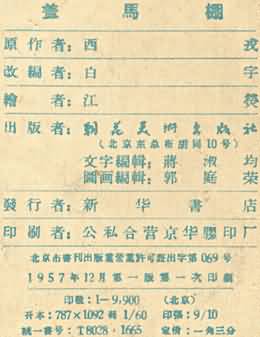 蓋馬棚
原作者：西戎
改編者：白宇
繪者：江熒
出版者：朝花美術出版社
（北京东总布胡同10号）
文字編輯：蔣淑均
圖画編輯：郭庭荣
發行者：新华書店
印刷者：公私合营京华膠印厂
北京市書刊出版業营業許可証出字第069号
1957年12月第一版第一次印刷
印数：1—9,900 （北京）
开本：787×1092耗 1/60 印張：9/10
統一書号：T8028·1665 定价：一角三分